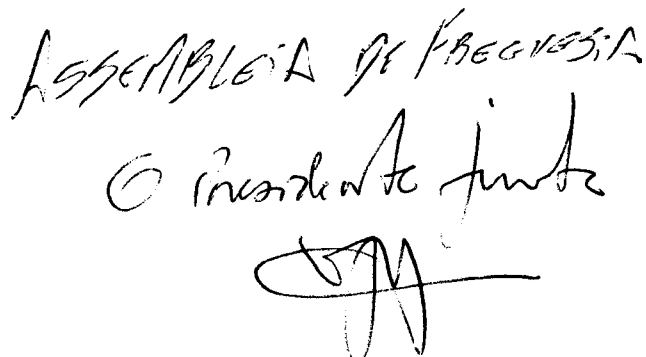 ASSEMBLEIA DE FREGUESIA
O Presidente Junta